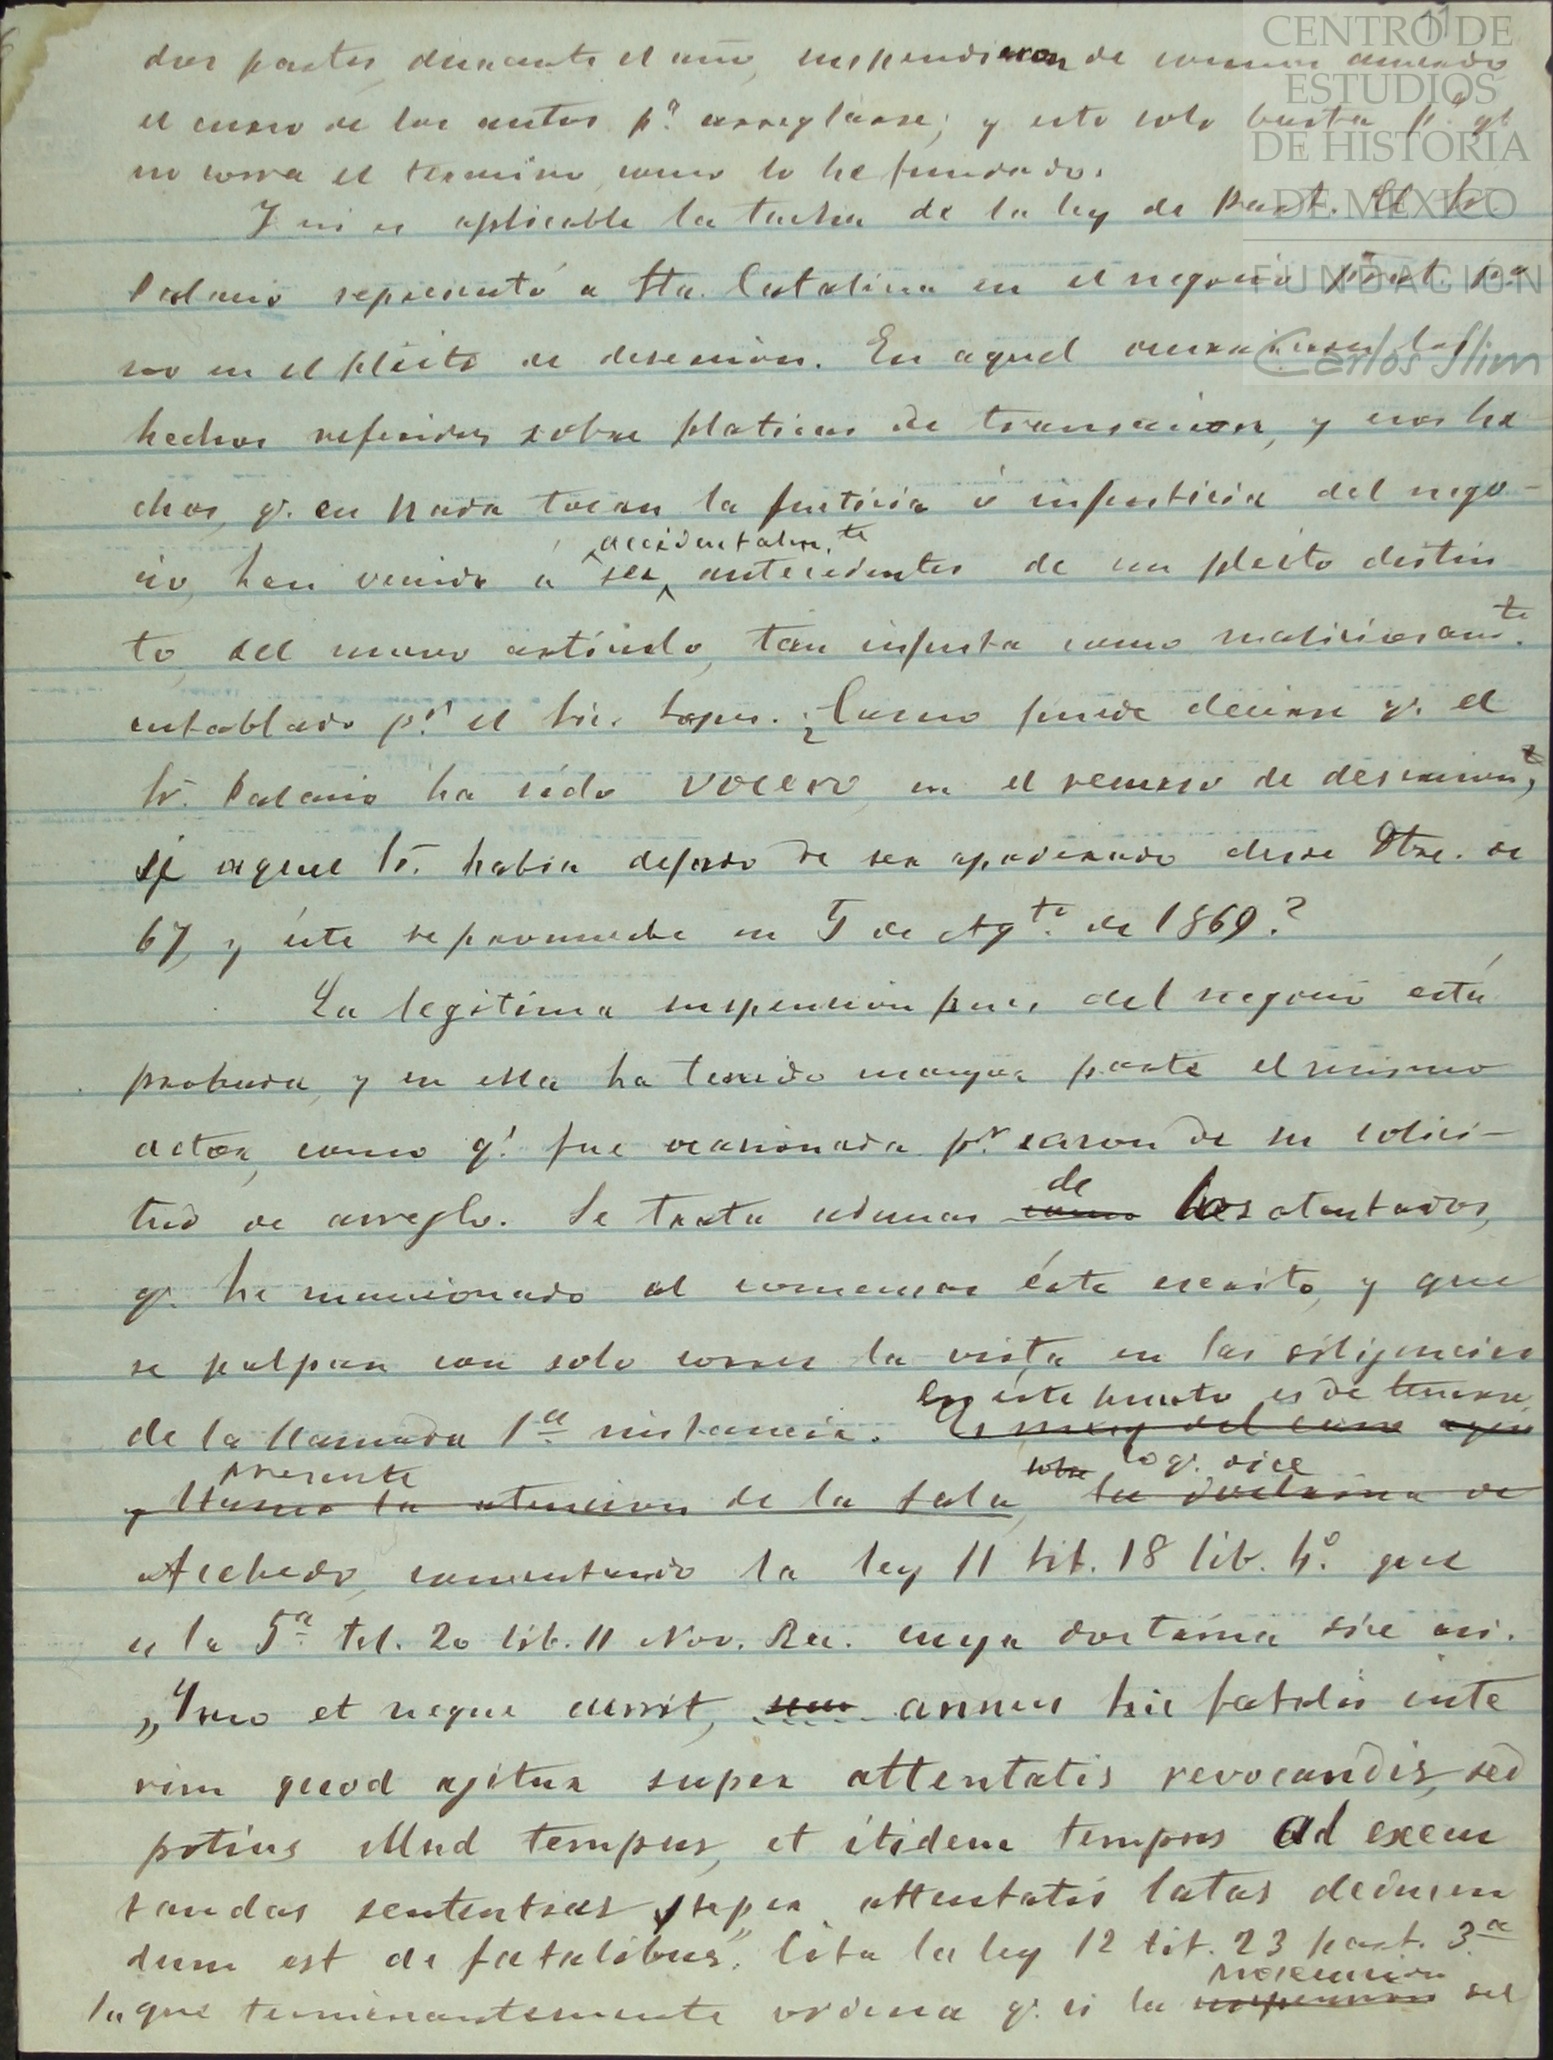 11
CENTRO DE
ESTUDIOS
DE HISTORIA
DE MEXICO
FUNDACION
Carlos Slim
dos partes, durante el año, suspendieron de comun acuerdo
el curso de los autos p.ª arreglarse; y esto solo basta p.ª q.e
no corra el termino, como lo he fundado.
Y ni es aplicable la tacha de la ley de Part. El Sr.
Palacio representó a Sta. Catalina en el negocio ppal. pe
ro en el pleito de desercion. En aquel ocurrieron los
hechos referidos sobre platicas de transacion, y esos he
chos, q. en nada tocan la justicia ó injusticia del nego-
cio, han venido á ser accidentalm.te antecedentes de un pleito distin
to, del nuevo artículo, tan injusta como maliciosam.te
entablado p.r el Lic. Lopes. ¿Como puede decirse q. el
Sr. Palacio ha sido vocero en el recurso de desercion,
si aquel Sr. habia dejado de ser apoderado desde Dbre. de
67, y éste se promueve en 5 de Ag.to de 1869?
La legitima suspencion pues del negocio está
probada, y en ella ha tenido mayor parte el mismo
actor, como q.e fue ocasionada p.r razon de su solici-
tud de arreglo. Se trata ademas como de los atentados,
q. he mencionado al comensar éste escrito, y que
se palpan con solo correr la vista en las diligencias
de la llamada 1.ª instancia. Es muy del caso aqui En éste punto es de tenerse
y llamo la atencion de la sala, presente sobre lo q. dice la doctrina de
Acebedo, comentando la ley 11 tit. 18 lib. 4.º que
es la 5.ª tit. 20 lib. 11 Nov. Rec. cuya doctrina dice asi.
„Imo et neque currit, annus hic fatalis inte
rim quod agitur super attentatis revocandis, sed
potius illud tempus, et itidem tempus ad execu
tandas sententias super attentatis latas deducen
dum est de fatalibus". Cita la ley 12 tit. 23 part. 3.ª
la que terminantemente ordena q. si la suspencion prosecucion del